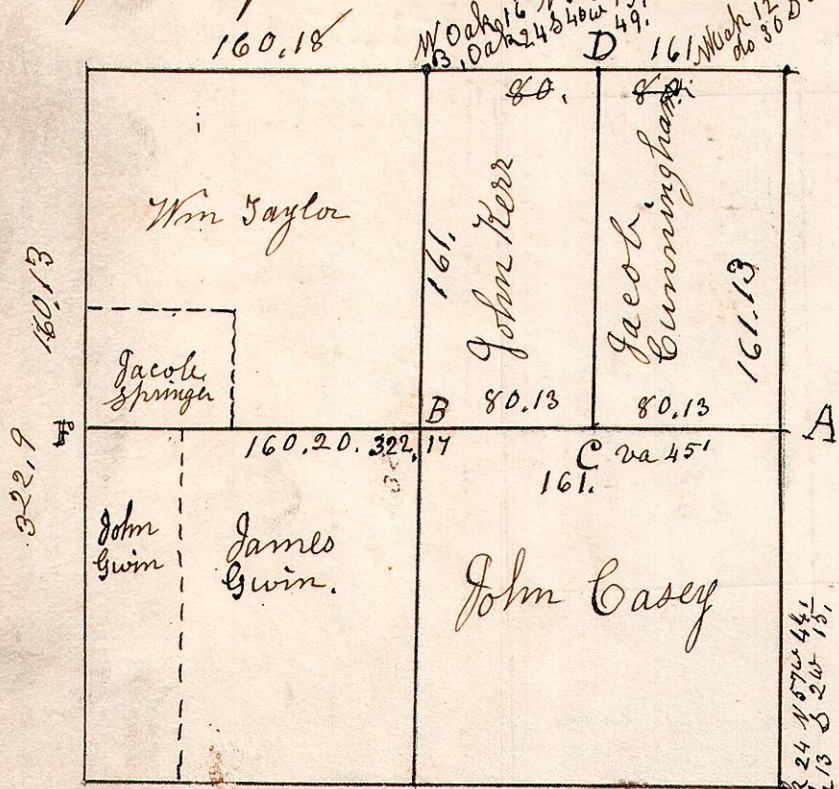 160.18
W Oak 16
B, Oak 24 S 40 W
49.
D
161
do 30
80.
Wm Taylor
161.
John Kerr
Jacob
Cunningham
161.13
160,13
Jacob
Springer
B
80.13
80.13
A
322.9
160.20.
322,17
C va 45'
161.
John
Gwin
James
Gwin.
John Casey
24 N 57 W 44
13 S 2 W 15,